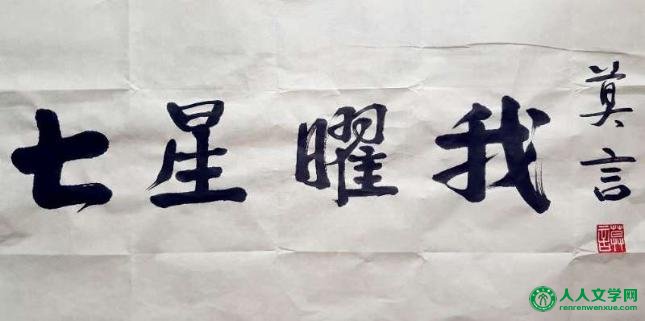 七星曜我
莫言
莫言
人人文学网
renrenwenxue.com